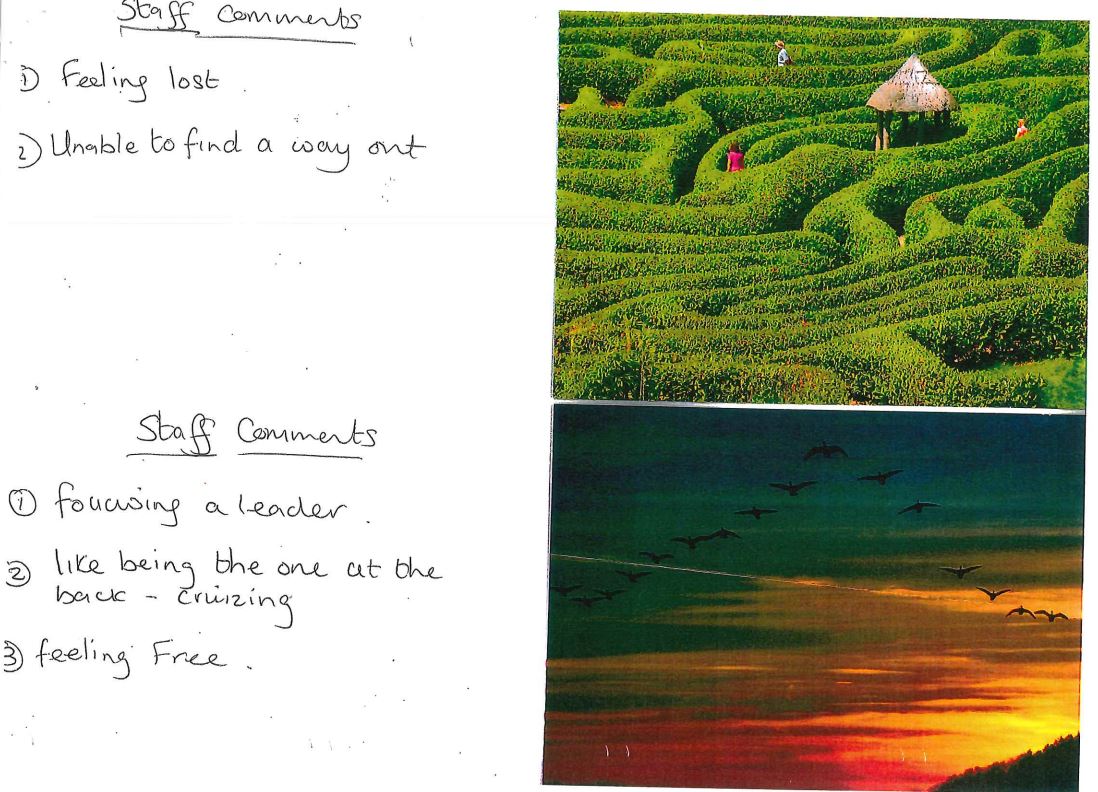 Staff Comments
1) Feeling lost
2) Unable to find a way out
Staff Comments
① foucusing a leader.
② like being the one at the
back - cruizing
③ feeling Free.